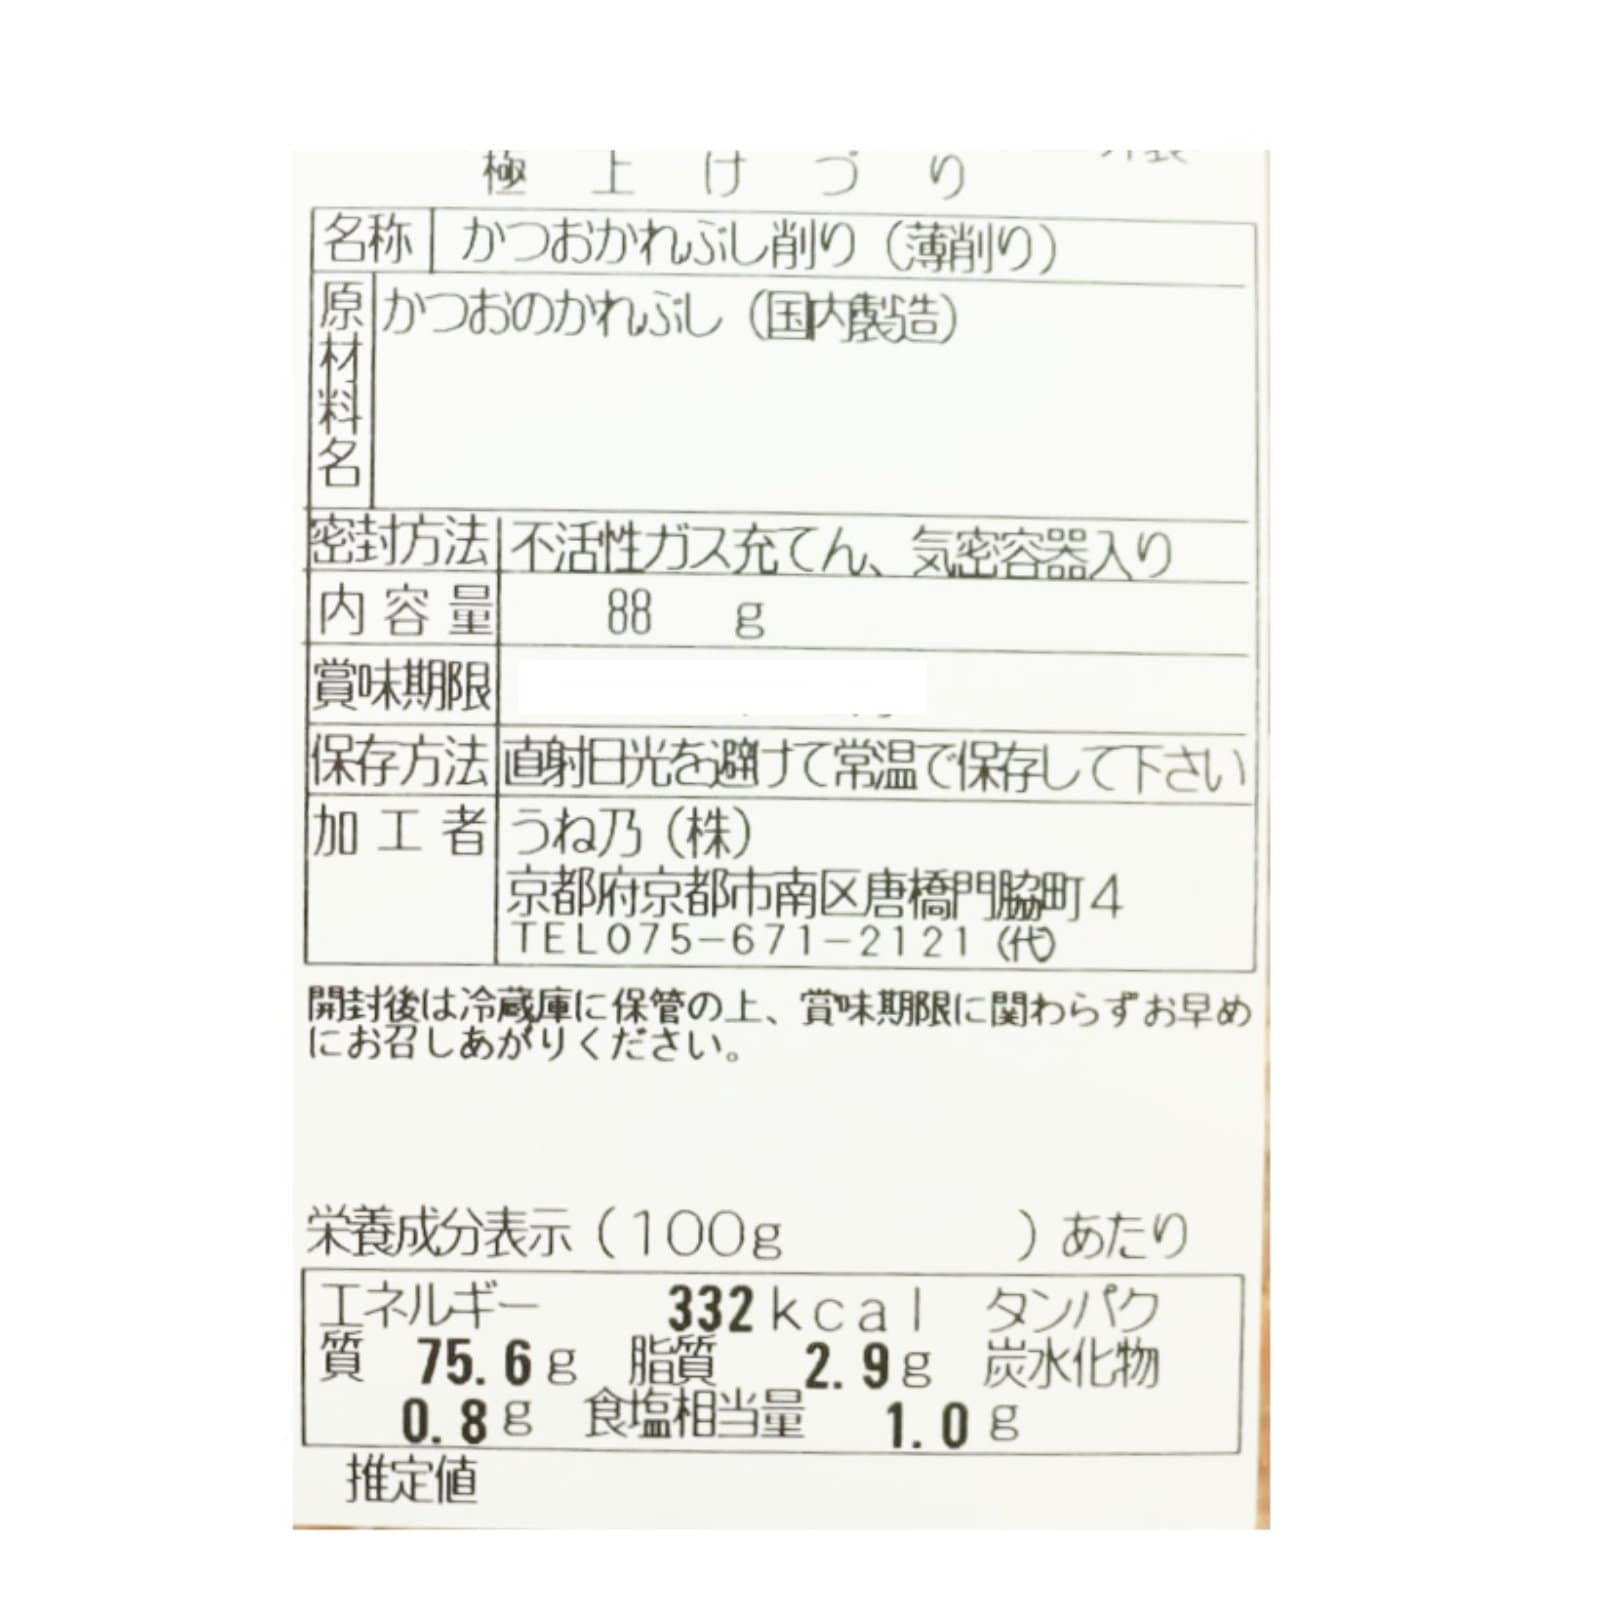 極上けづり
名称 かつおかれぶし削り（薄削り）
原材料名 かつおのかれぶし（国内製造）
密封方法 不活性ガス充てん、気密容器入り
内容量 88 g
賞味期限
保存方法 直射日光を避けて常温で保存して下さい
加工者 うね乃（株）
京都府京都市南区唐橋門脇町4
TEL075-671-2121（代）
開封後は冷蔵庫に保管の上、賞味期限に関わらずお早め
にお召しあがりください。
栄養成分表示（100g ）あたり
エネルギー 332kcal タンパク
質 75.6g 脂質 2.9g 炭水化物
0.8g 食塩相当量 1.0g
推定値